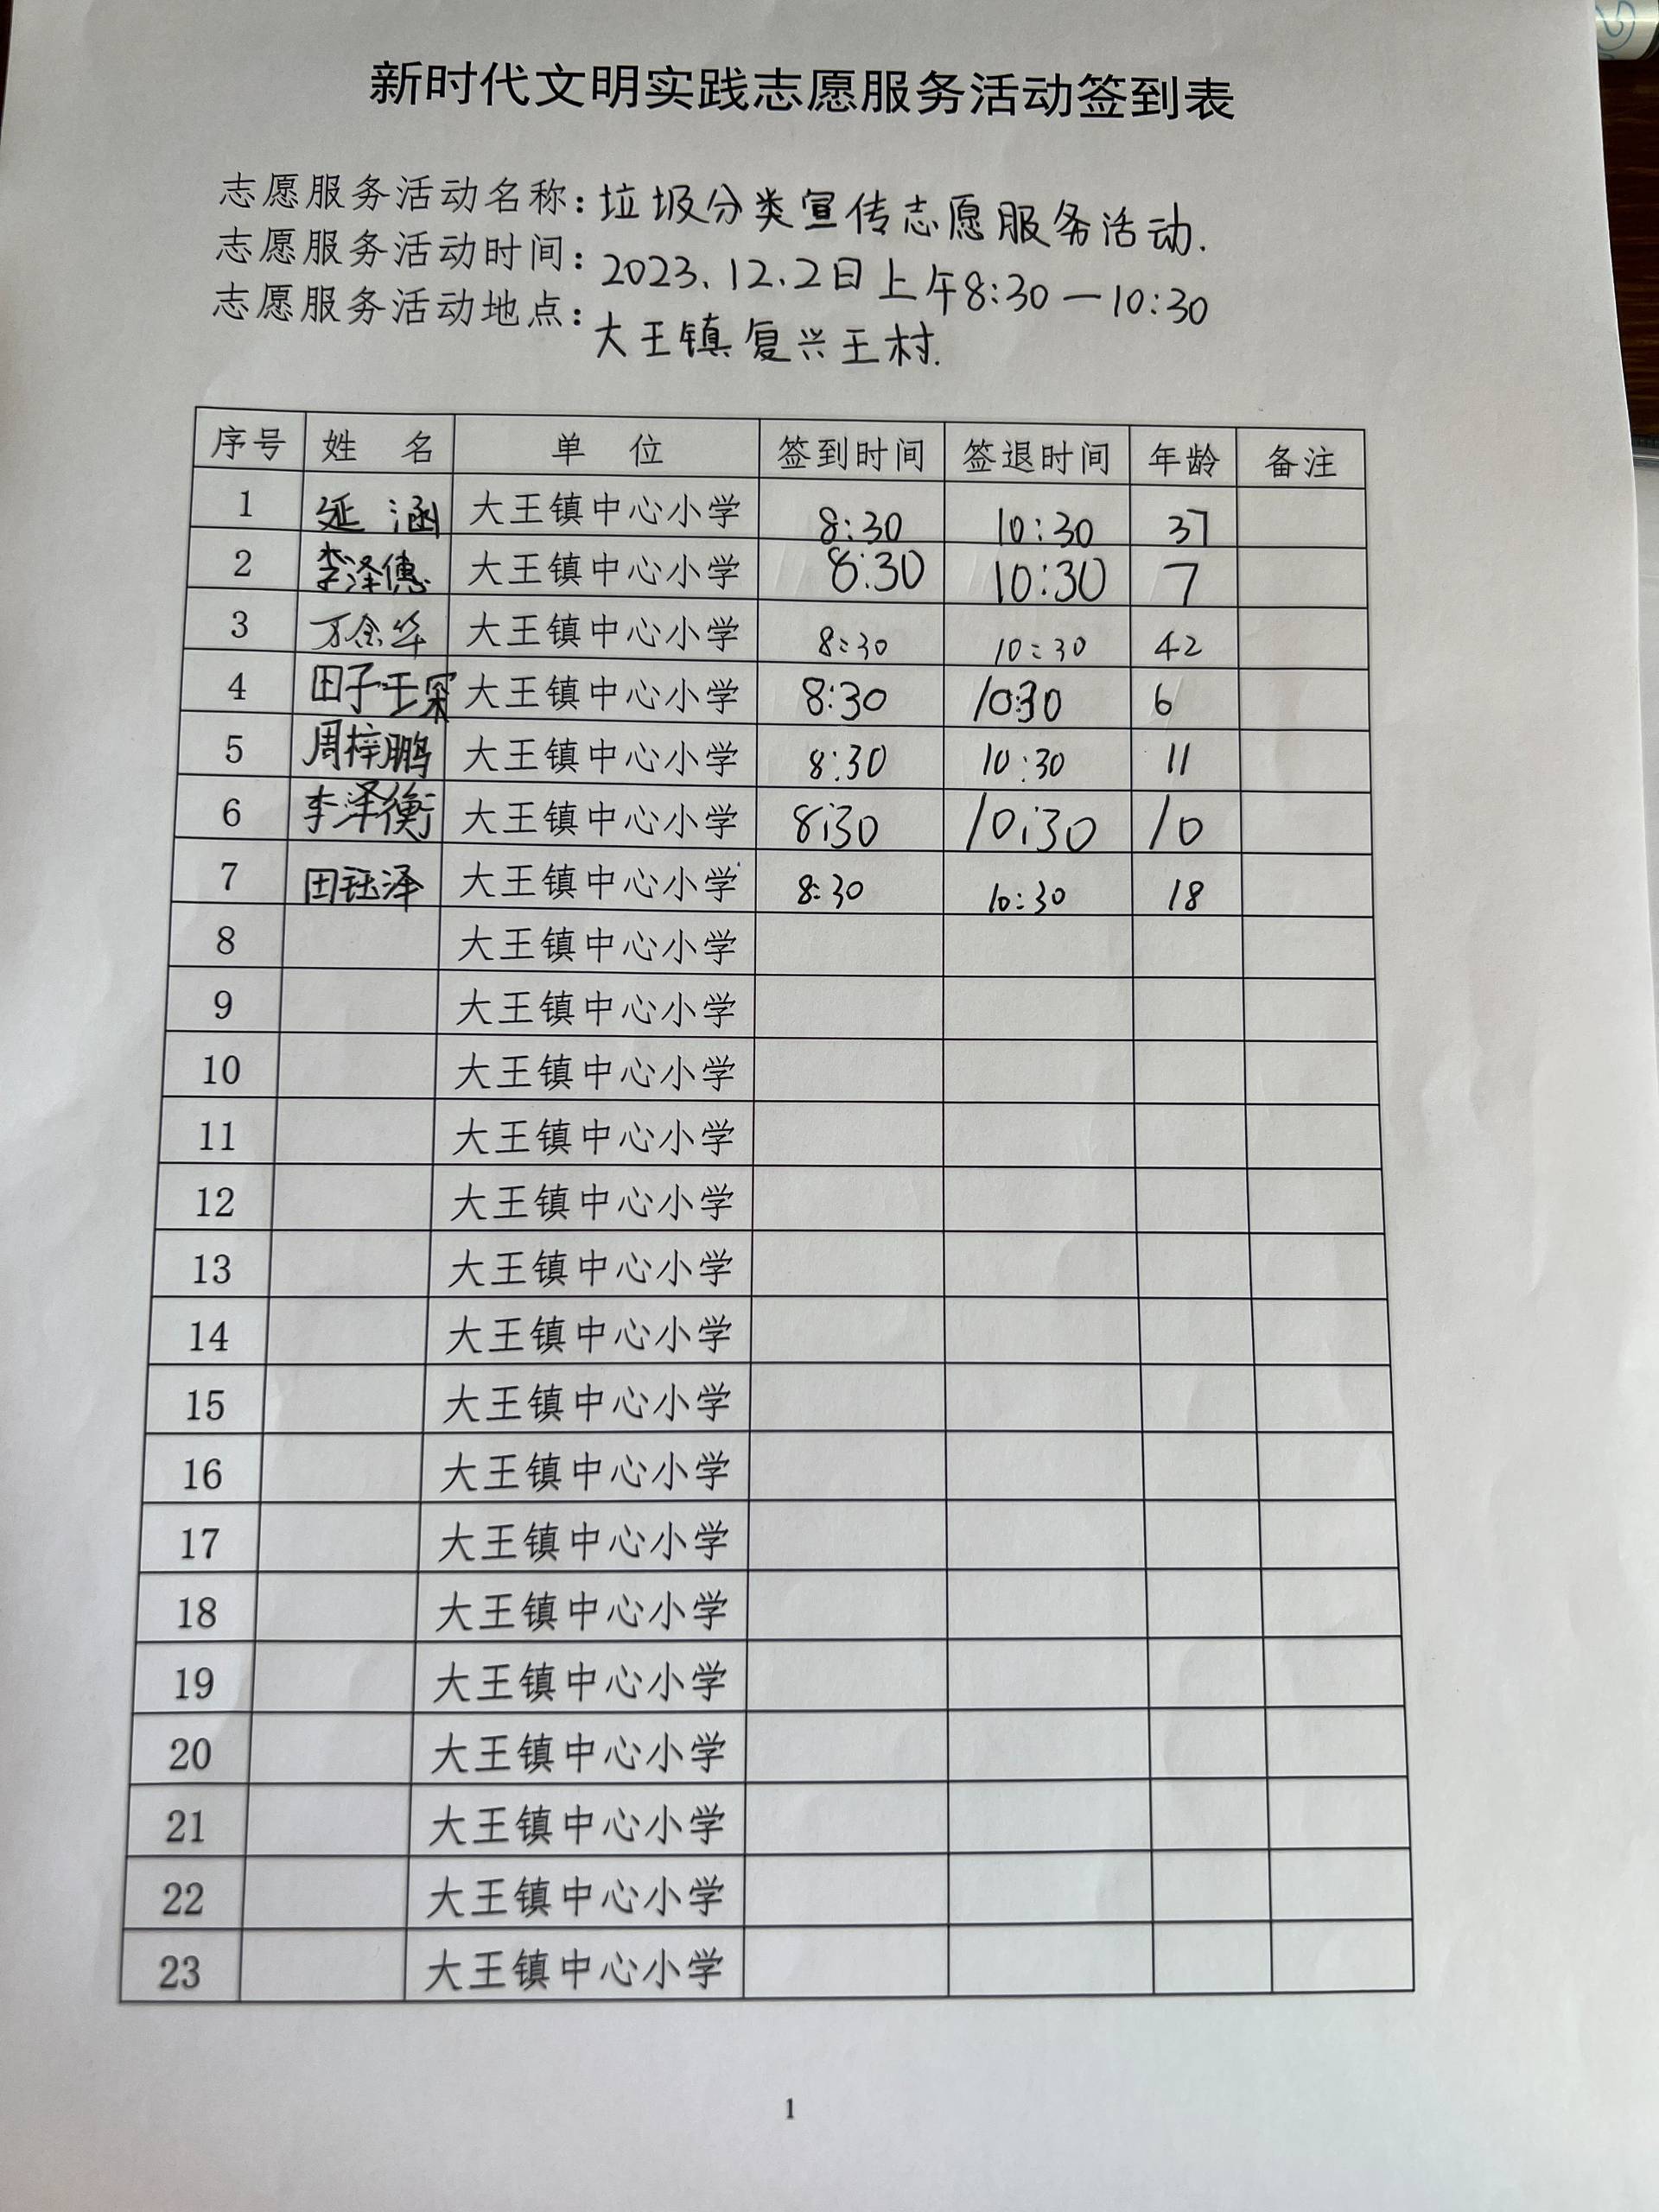 新时代文明实践志愿服务活动签到表
志愿服务活动名称：垃圾分类宣传志愿服务活动.
志愿服务活动时间：2023.12.2日上午8:30—10:30
志愿服务活动地点：大王镇复兴王村.
序号 姓 名 单 位 签到时间 签退时间 年龄 备注
1 延 涵 大王镇中心小学 8:30 10:30 37
2 李泽德 大王镇中心小学 8:30 10:30 7
3 万金华 大王镇中心小学 8:30 10:30 42
4 田子琛 大王镇中心小学 8:30 10:30 6
5 周梓鹏 大王镇中心小学 8:30 10:30 11
6 李泽衡 大王镇中心小学 8:30 10:30 10
7 田钰泽 大王镇中心小学 8:30 10:30 18
8 大王镇中心小学
9 大王镇中心小学
10 大王镇中心小学
11 大王镇中心小学
12 大王镇中心小学
13 大王镇中心小学
14 大王镇中心小学
15 大王镇中心小学
16 大王镇中心小学
17 大王镇中心小学
18 大王镇中心小学
19 大王镇中心小学
20 大王镇中心小学
21 大王镇中心小学
22 大王镇中心小学
23 大王镇中心小学
1